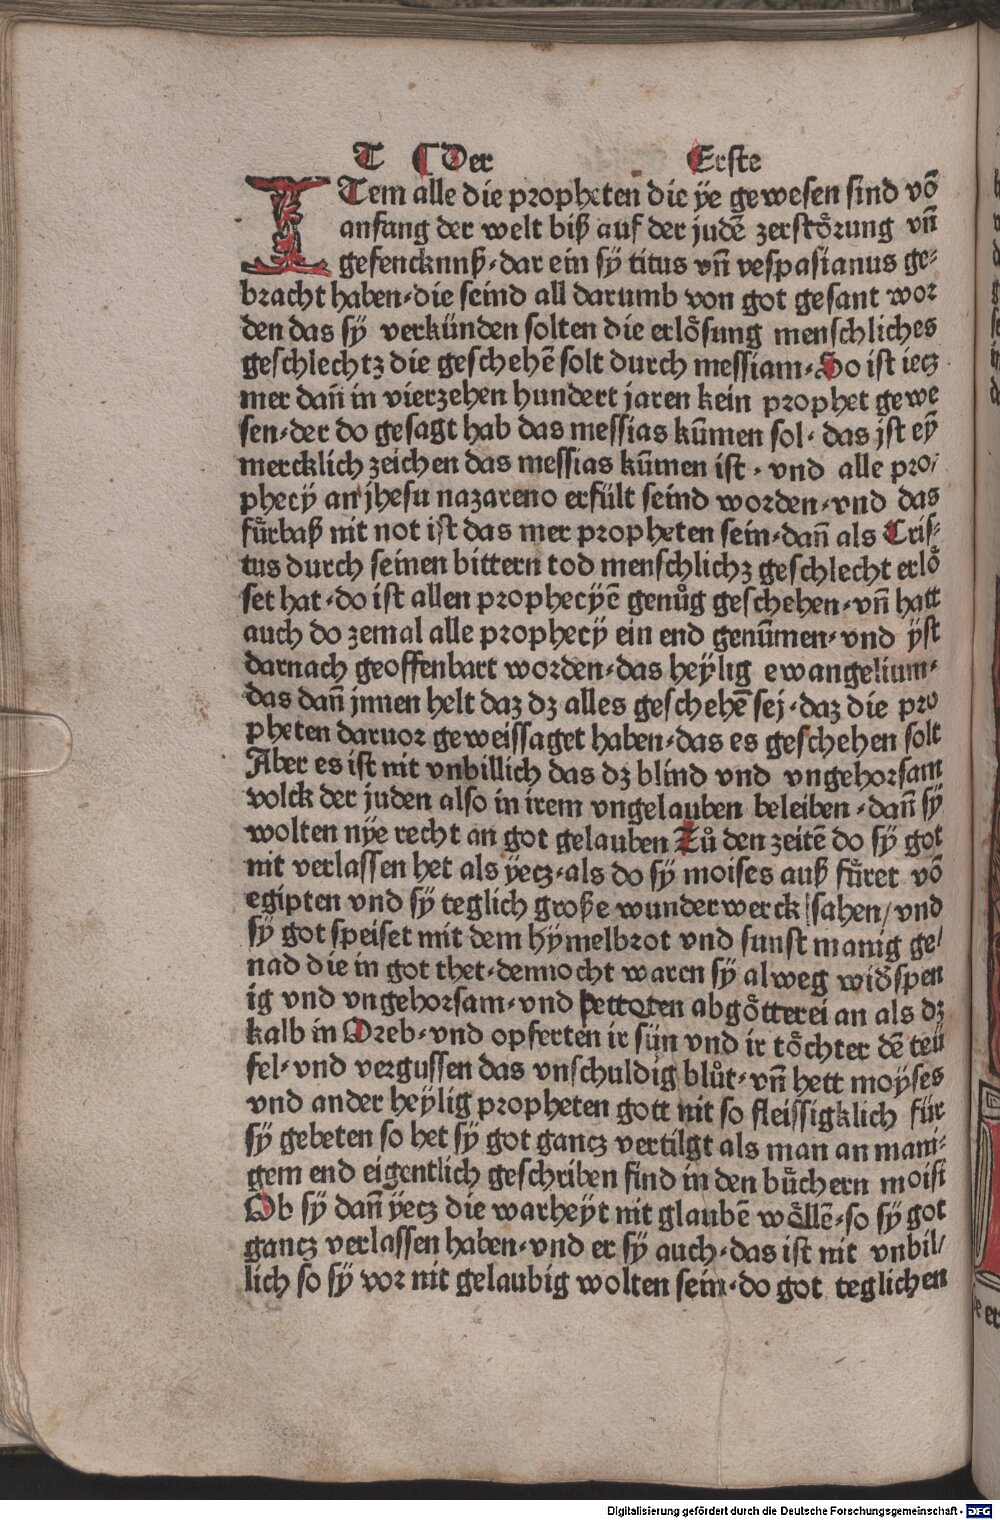 T ¶ Der Erste
ITem alle die propheten die ÿe gewesen sind võ
anfang der welt biß auf der judẽ zerstoͤrung vñ
gefencknuß· dar ein sÿ titus vñ vespasianus ge⸗
bracht haben· die seind all darumb von got gesant wor
den das sÿ verkünden solten die erloͤsung menschliches
geschlechtz die geschehẽ solt durch messiam· So ist iecz
mer dañ in vierzehen hundert jaren kein prophet gewe
sen· der do gesagt hab das messias kūmen sol· das jst eỹ
mercklich zeichen das messias kūmen ist · vnd alle pro/
phecÿ an jhesu nazareno erfült seind worden· vnd das
fuͤrbaß nit not ist das mer propheten sein· dañ als Cris⸗
tus durch seinen bittern tod menschlichz geschlecht erloͤ
set hat · do ist allen prophecÿẽ genuͦg geschehen· vñ hatt
auch do zemal alle prophecÿ ein end genūmen· vnd ÿst
darnach geoffenbart worden· das heÿlig ewangelium·
das dañ jnnen helt daz dz alles geschehẽ sej · daz die pro
pheten daruor geweissaget haben· das es geschehen solt
Aber es ist nit vnbillich das dz blind vnd vngehorsam
volck der juden also in irem vngelauben beleiben · dañ sÿ
wolten nÿe recht an got gelauben Zuͦ den zeitẽ do sÿ got
nit verlassen het als ÿecz· als do sÿ moises auß fuͤret võ
egipten vnd sÿ teglich große wunderwerck sahen/ vnd
sÿ got speiset mit dem hÿmelbrot vnd sunst manig ge/
nad die in got thet· dennocht waren sÿ alweg wid̃spen
ig vnd vngehorsam· vnd pettoten abgoͤtterei an als dz
kalb in Oreb· vnd opferten ir sün vnd ir toͤchter dẽ teü
fel· vnd vergussen das vnschuldig bluͦt· vñ hett moÿses
vnd ander heÿlig propheten gott nit so fleissigklich für
sÿ gebeten so het sÿ got gancz vertilgt als man an mani⸗
gem end eigentlich geschriben find in den buͤchern moisi
Ob sÿ dañ ÿecz die warheÿt nit glaubẽ woͤllẽ· so sÿ got
gancz verlassen haben· vnd er sÿ auch· das ist nit vnbil/
lich so sÿ vor nit gelaubig wolten sein· do got teglichen
Digitalisierung gefördert durch die Deutsche Forschungsgemeinschaft - DFG